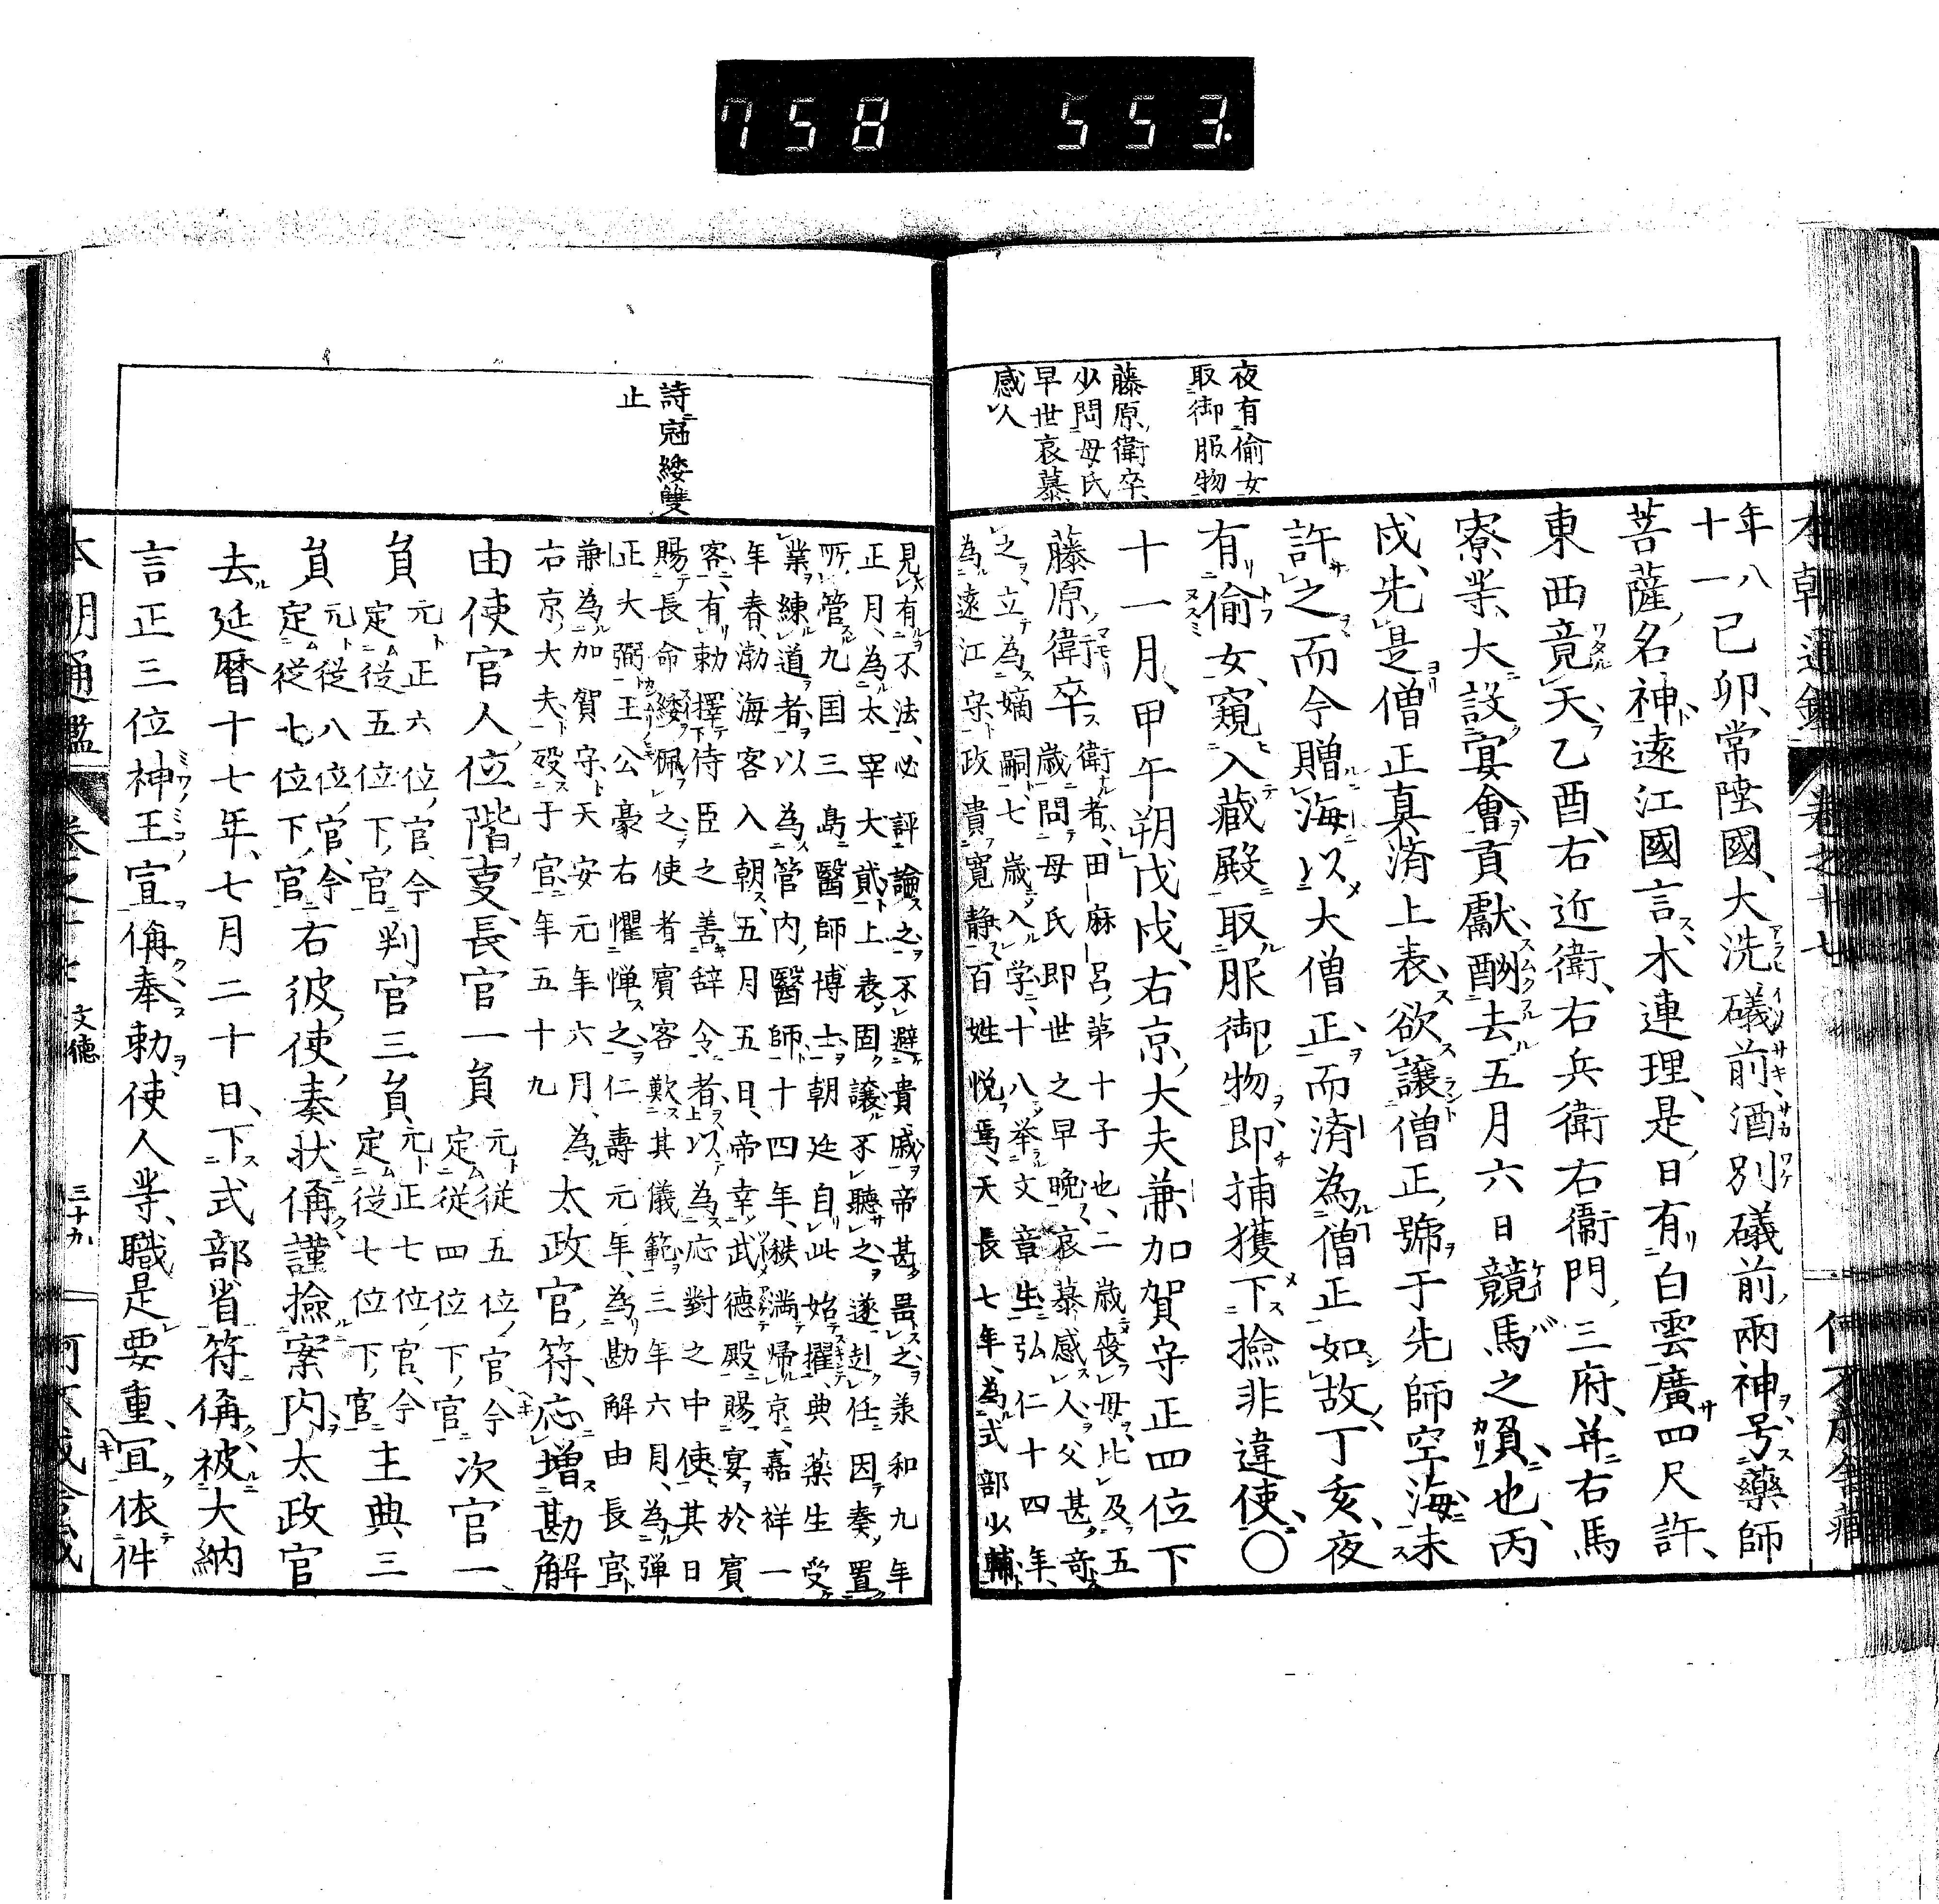 758 553.
夜有偷女
取御服物
藤原衛卒
少問母氏
早世哀慕
感人
本朝通鑑 卷之十七
年八
十一
己卯、常陸國、大洗礒前、酒列礒前、兩神号藥師
菩薩名神、遠江國言、木連理、是日有白雲、廣四尺許、
東西竟天、乙酉、右近衛、右兵衛、右衞門、三府、幷右馬
寮等、大設宴會、貢獻、酬去五月六日競馬之負也、丙
戌、先是僧正真済上表、欲讓僧正號于先師空海、未
許之、而今贈海以大僧正、而済為僧正如故、丁亥、夜
有偷女、窺入藏殿、取服御物、即捕獲下撿非違使、〇
十一月、甲午朔、戊戌、右京大夫兼加賀守正四位下
藤原衛卒
衛者、内麻呂第十子也、二歳喪母、比及五
歳問母氏即世之早晚、哀慕感人、父甚奇
之、立為嫡嗣、七歳入学、十八举文章生、弘仁十四年、
為遠江守、政貴寛静、百姓悦焉、天長七年、為式部少輔
詩冠綾雙
止
見有不法、必評論之、不避貴戚、帝甚器之、承和九年
正月、為太宰大貳、上表固讓、不聽之、遂赴任、因奏、置
所管九国三島醫師博士、朝廷自此始擢典薬生受
業練道者、以為管内醫師、十四年、秩満歸京、嘉祥一
年春、渤海客入朝、五月五日、帝幸武德殿、賜宴於賓
客、有勅擇侍臣之善辞令者、以為応對之中使、其日
賜長命綾佩之、使者賓客歎其儀範、三年六月、為弾
正大弼、王公豪右懼憚之、仁壽元年、為勘解由長官、
兼為加賀守、天安元年六月、為
右京大夫、殁于官、年五十九
太政官符、応増勘解
由使官人位階事、長官一員
元従五位官、今
定従四位下官
次官一
員
元正六位官、今
定従五位下官
判官三員
元正七位官、今
定従七位下官
主典三
員
元従八位官、今
定従七位下官
右彼使奏状偁、謹撿案内、太政官
去延暦十七年、七月二十日、下式部省符偁、被大納
言正三位神王宣偁、奉勅使人等、職是要重、宜依件
本朝通鑑 卷之十七 文德 三十九